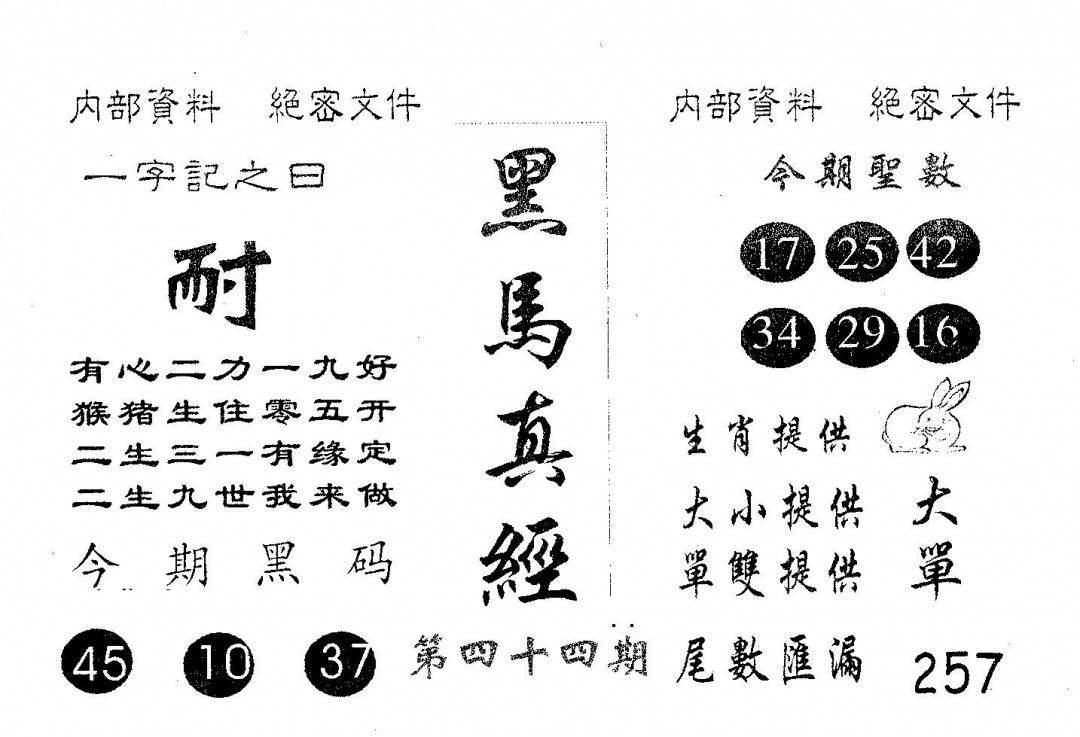 内部資料 絕密文件
一字記之曰
耐
有心二力一九好
猴猪生住零五开
二生三一有缘定
二生九世我来做
今期黑码
45 10 37
黑馬真經
第四十四期
内部資料 絕密文件
今期聖數
17 25 42
34 29 16
生肖提供
大小提供 大
單雙提供 單
尾數匯漏 257